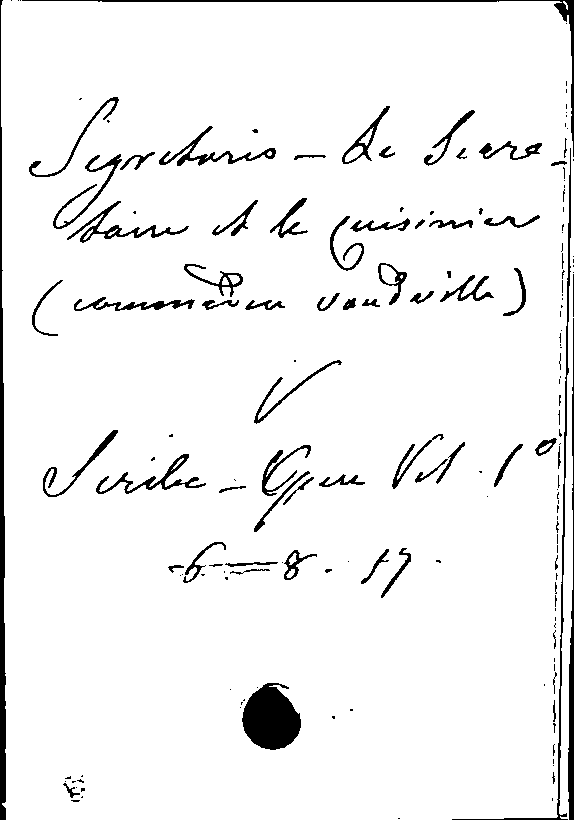 Segretario – Le Secre-
taire et le cuisinier
(commedia vaudeville)
V
Scribe – Opere Vol. 1º
6 = 8. 17.